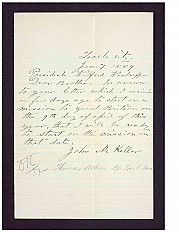 Tooele city
Jan 7 1889
President Wilford Woodruff
Dear Brother. In answer
to your letter which I received
a few days ago to start on a
mission to Great Britian on
the 9th day of april of this
year, that I will be ready
to start on the mission on
that date,
John M.
Thomas Atkin Bp